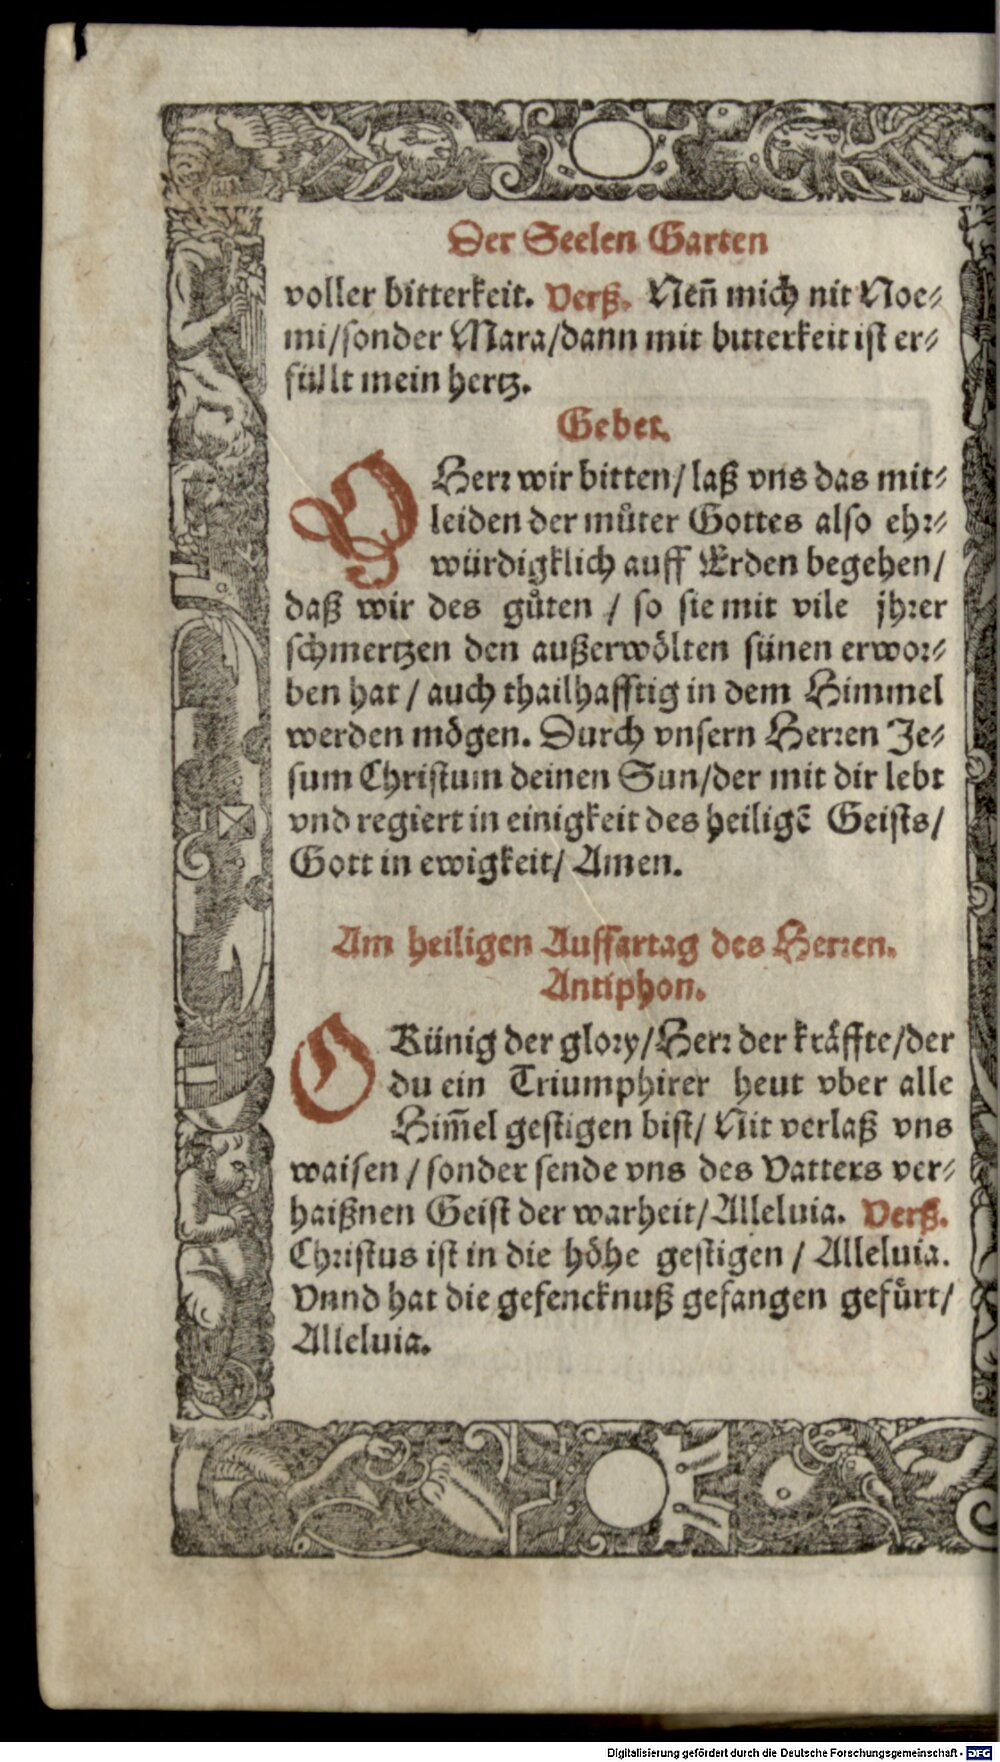 Der Seelen Garten
voller bitterkeit. Verß. Neñ mich nit Noe⸗
mi/sonder Mara/dann mit bitterkeit ist er⸗
füllt mein hertz.
Gebet.
O Herr wir bitten/ laß vns das mit⸗
leiden der můter Gottes also ehr⸗
würdigklich auff Erden begehen/
daß wir des gůten / so sie mit vile jhrer
schmertzen den außerwölten sünen erwor⸗
ben hat / auch thailhafftig in dem Himmel
werden mögen. Durch vnsern Herren Je⸗
sum Christum deinen Sun/der mit dir lebt
vnd regiert in einigkeit des heiligẽ Geists/
Gott in ewigkeit/ Amen.
Am heiligen Auffartag des Herren.
Antiphon.
O Künig der glory/Herr der kräffte/der
du ein Triumphirer heut vber alle
Him̃el gestigen bist/ Nit verlaß vns
waisen / sonder sende vns des Vatters ver⸗
haißnen Geist der warheit/Alleluia. Verß.
Christus ist in die höhe gestigen / Alleluia.
Vnnd hat die gefencknuß gefangen gefůrt/
Alleluia.
Digitalisierung gefördert durch die Deutsche Forschungsgemeinschaft - DFG